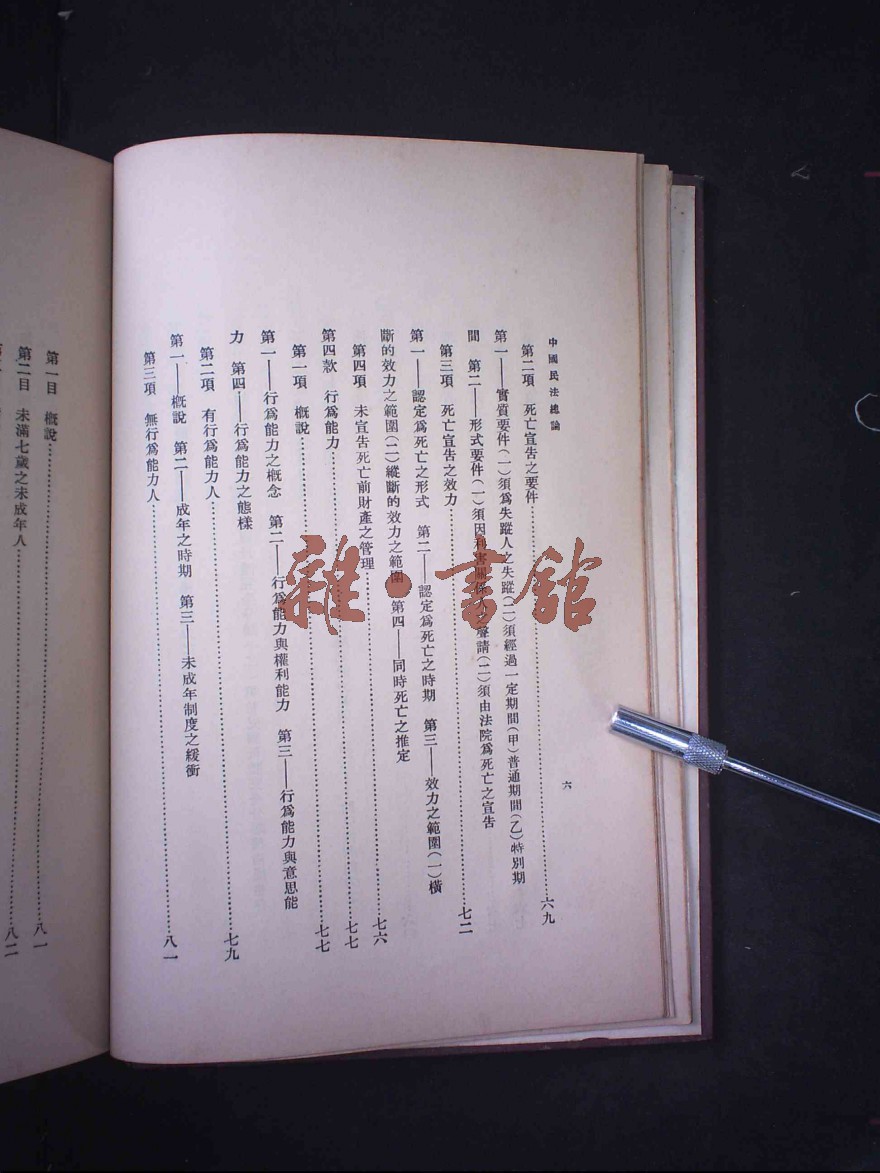 中國民法總論
六
第二項　死亡宣告之要件……六九
第一——實質要件(一)須爲失蹤人之失蹤(二)須經過一定期間(甲)普通期間(乙)特別期
間　第二——形式要件(一)須因利害關係人之聲請(二)須由法院爲死亡之宣告
第三項　死亡宣告之效力……七二
第一——認定爲死亡之形式　第二——認定爲死亡之時期　第三——效力之範圍(一)橫
斷的效力之範圍(二)縱斷的效力之範圍　第四——同時死亡之推定
第四項　未宣告死亡前財產之管理……七六
第四款　行爲能力……七七
第一項　概說……七七
第一——行爲能力之概念　第二——行爲能力與權利能力　第三——行爲能力與意思能
力　第四——行爲能力之態樣
第二項　有行爲能力人……七九
第一——概說　第二——成年之時期　第三——未成年制度之緩衝
第三項　無行爲能力人……八一
第一目　概說……八一
第二目　未滿七歲之未成年人……八二
雜·書館